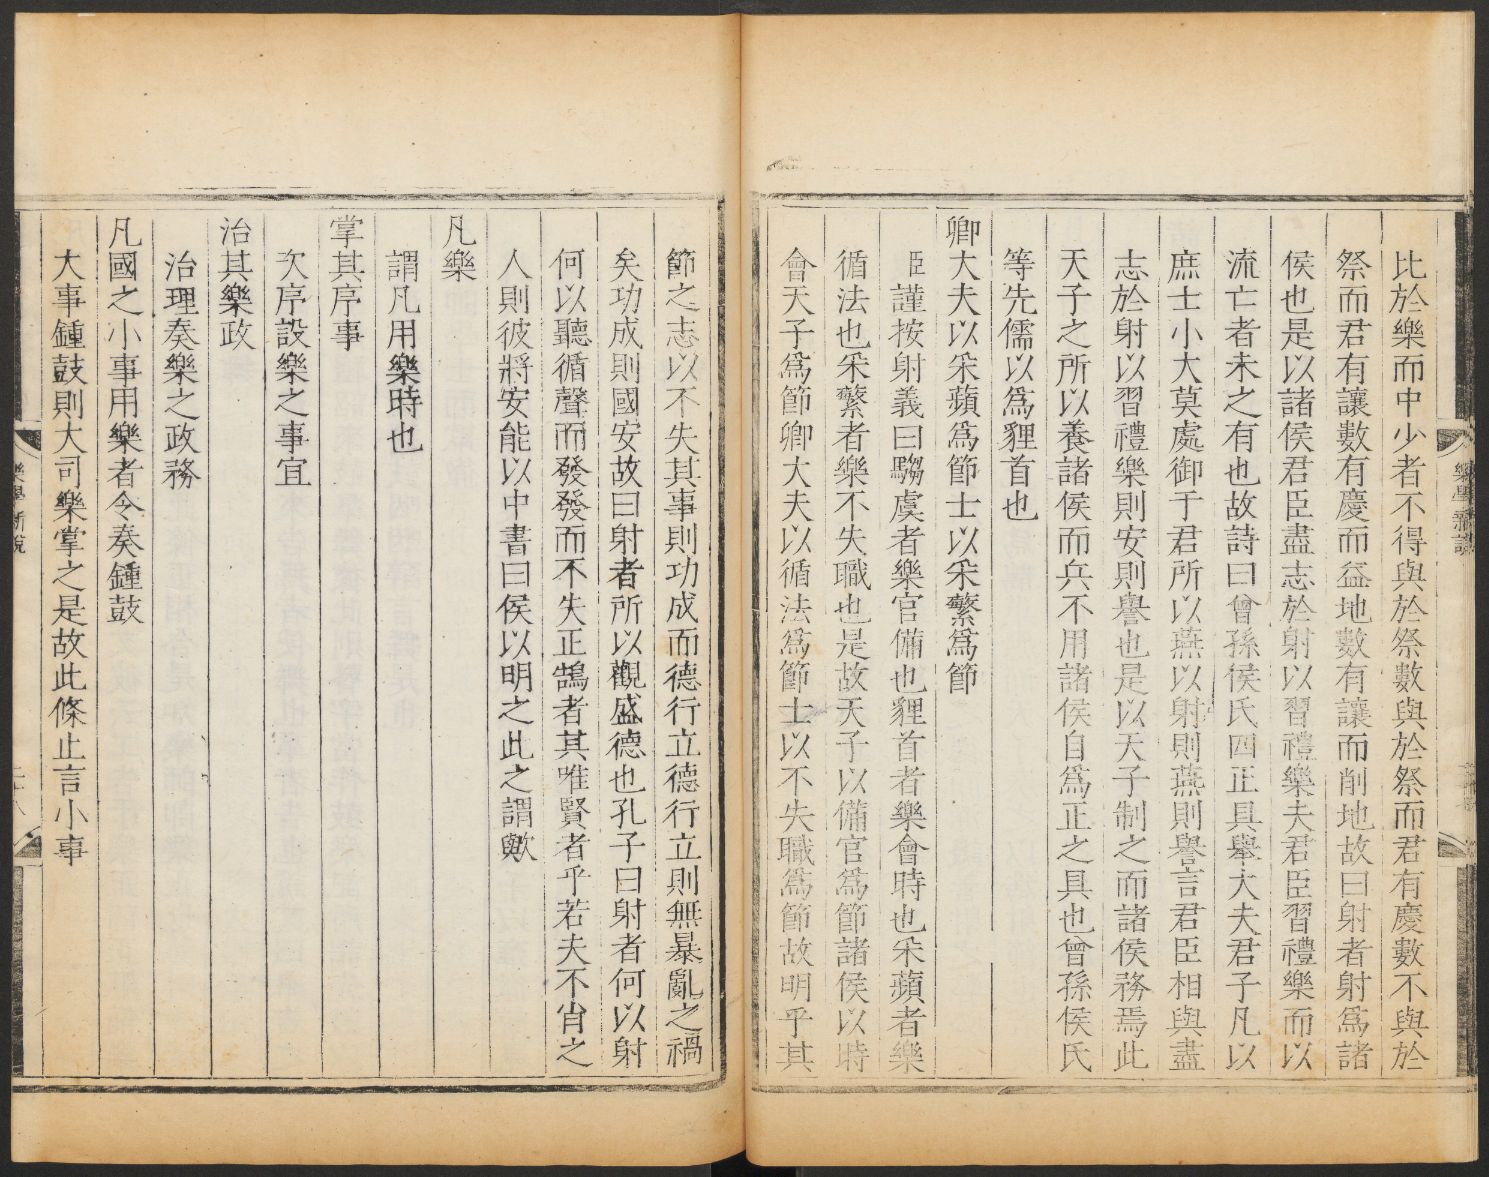 比於樂而中少者不得與於祭數與於祭而君有慶數不與於
祭而君有讓數有慶而益地數有讓而削地故曰射者射爲諸
侯也是以諸侯君臣盡志於射以習禮樂夫君臣習禮樂而以
流亡者未之有也故詩曰曾孫侯氏四正具舉大夫君子凡以
庶士小大莫處御于君所以燕以射則燕則譽言君臣相與盡
志於射以習禮樂則安則譽也是以天子制之而諸侯務焉此
天子之所以養諸侯而兵不用諸侯自爲正之具也曾孫侯氏
等先儒以爲貍首也
卿大夫以采蘋爲節士以采蘩爲節
臣謹按射義曰騶虞者樂官備也貍首者樂會時也采蘋者樂
循法也采蘩者樂不失職也是故天子以備官爲節諸侯以時
會天子爲節卿大夫以循法爲節士以不失職爲節故明乎其
樂學新說
節之志以不失其事則功成而德行立德行立則無暴亂之禍
矣功成則國安故曰射者所以觀盛德也孔子曰射者何以射
何以聽循聲而發發而不失正鵠者其唯賢者乎若夫不肖之
人則彼將安能以中書曰侯以明之此之謂歟
凡樂
謂凡用樂時也
掌其序事
次序設樂之事宜
治其樂政
治理奏樂之政務
凡國之小事用樂者令奏鍾鼓
大事鍾鼓則大司樂掌之是故此條止言小事
樂學新說
二十八